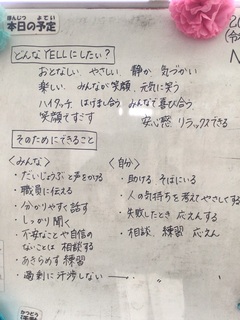 ほんじつ よてい
本日の予定
どんなYELLにしたい？
おとなしい やさしい 静か 気づかい
楽しい みんなが笑顔 元気に笑う
ハイタッチ はげまし合う みんなで喜び合う
笑顔ですごす 安心感 リラックスできる
そのためにできること
＜みんな＞
・だいじょうぶと声をかける
・職員に伝える
・分かりやすく話す
・しっかり聞く
・不安なことや自信の
ないことは 相談する
・あきらめず 練習
・過剰に干渉しない
＜自分＞
・助ける そばにいる
・人の気持ちを考えてやさしくする
・失敗したとき 応えんする
・相談 練習 応えん